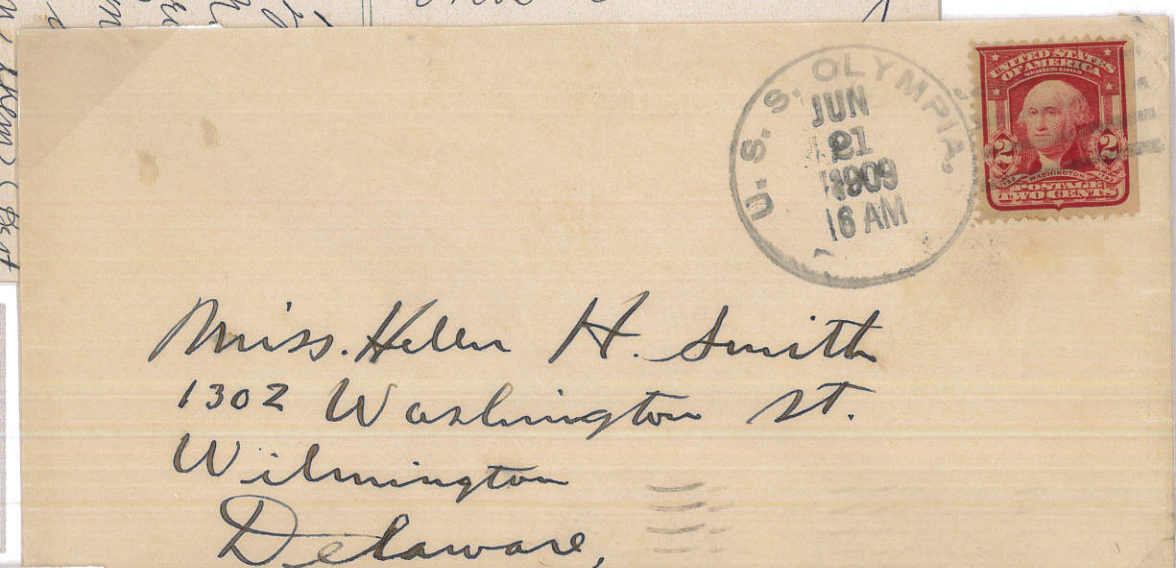 U. S. S. OLYMPIA.
JUN
21
1909
6 AM
UNITED STATES
OF AMERICA
SERIES 1902
2 2
WASHINGTON
POSTAGE
TWO CENTS
Miss. Helen H. Smith
1302 Washington St.
Wilmington
Delaware,